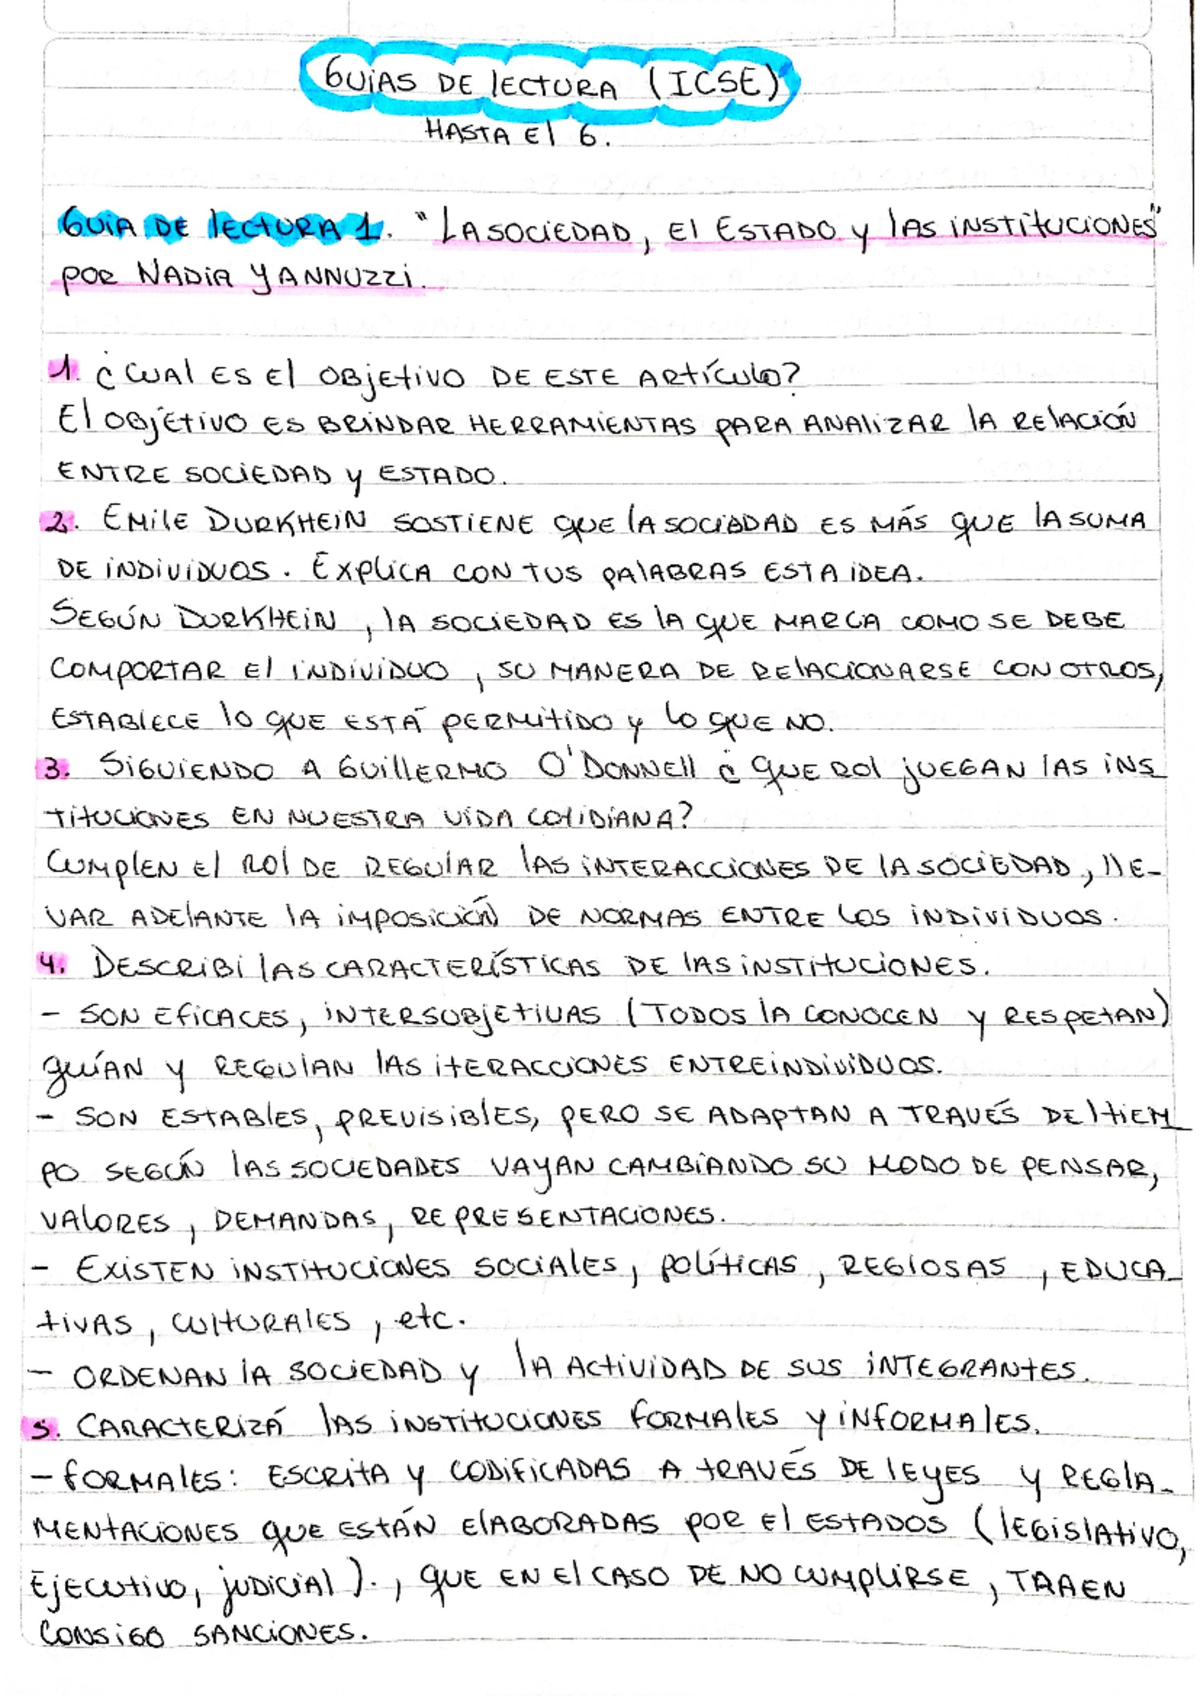 GUIAS DE LECTURA (ICSE)
HASTA El 6.
GUIA DE LECTURA 1. "LA SOCIEDAD, El ESTADO y LAS INSTITUCIONES"
POR NADIA YANNUZZI.
1. ¿CUAL ES El OBJETIVO DE ESTE ARTÍCULO?
El OBJETIVO ES BRINDAR HERRAMIENTAS PARA ANALIZAR LA RELACIÓN
ENTRE SOCIEDAD y ESTADO.
2. EMILE DURKHEIN SOSTIENE QUE LA SOCIEDAD ES MÁS QUE LA SUMA
DE INDIVIDUOS. EXPLICA CON TUS PALABRAS ESTA IDEA.
SEGÚN DURKHEIN, LA SOCIEDAD ES LA QUE MARCA COMO SE DEBE
COMPORTAR El INDIVIDUO, SU MANERA DE RELACIONARSE CON OTROS,
ESTABLECE LO QUE ESTÁ PERMITIDO y LO QUE NO.
3. SIGUIENDO A GUILLERMO O'DONNELL ¿QUE ROL JUEGAN LAS INS
TITUCIONES EN NUESTRA VIDA COTIDIANA?
CUMPLEN El ROL DE REGULAR LAS INTERACCIONES DE LA SOCIEDAD, LLE-
VAR ADELANTE LA IMPOSICIÓN DE NORMAS ENTRE LOS INDIVIDUOS.
4. DESCRIBI LAS CARACTERÍSTICAS DE LAS INSTITUCIONES.
- SON EFICACES, INTERSUBJETIVAS (TODOS LA CONOCEN y RESPETAN)
GUÍAN y REGULAN LAS ITERACCIONES ENTRE INDIVIDUOS.
- SON ESTABLES, PREVISIBLES, PERO SE ADAPTAN A TRAVÉS DEL TIEM
PO SEGÚN LAS SOCIEDADES VAYAN CAMBIANDO SU MODO DE PENSAR,
VALORES, DEMANDAS, REPRESENTACIONES.
- EXISTEN INSTITUCIONES SOCIALES, POLÍTICAS, REGIOSAS, EDUCA-
TIVAS, CULTURALES, etc.
- ORDENAN LA SOCIEDAD y LA ACTIVIDAD DE SUS INTEGRANTES.
5. CARACTERIZÁ LAS INSTITUCIONES FORMALES y INFORMALES.
- FORMALES: ESCRITA y CODIFICADAS A TRAVÉS DE LEYES y REGLA-
MENTACIONES QUE ESTÁN ELABORADAS POR El ESTADOS (LEGISLATIVO,
EJECUTIVO, JUDICIAL)., QUE EN El CASO DE NO CUMPLIRSE, TRAEN
CONSIGO SANCIONES.